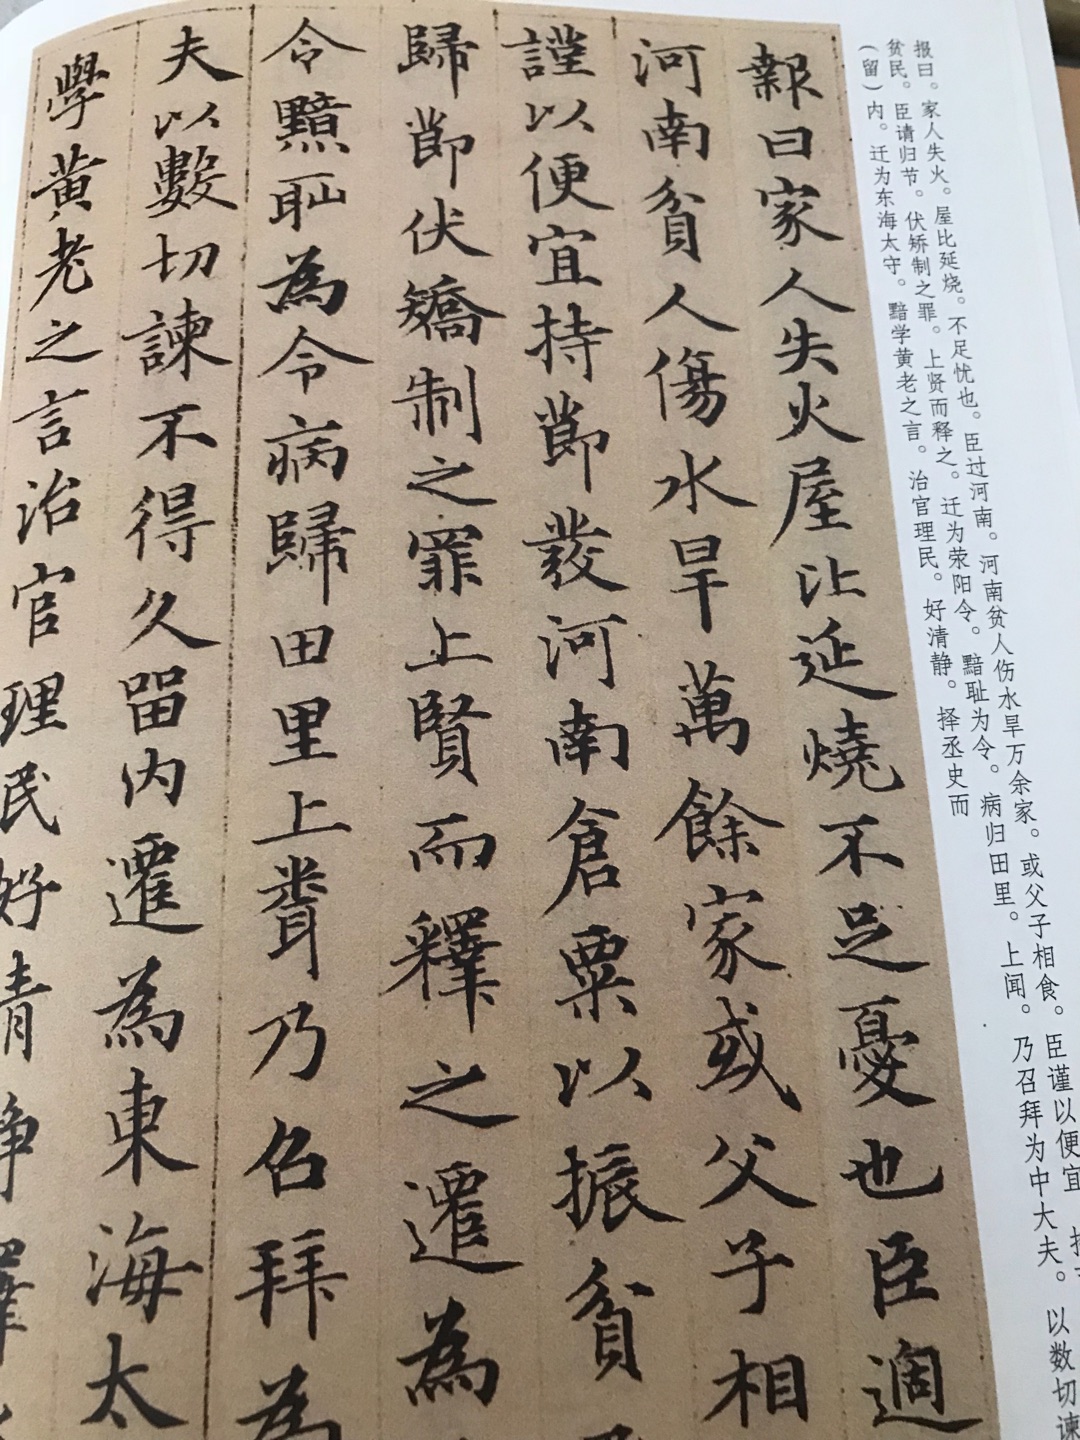 报曰。家人失火。屋比延烧。不足忧也。臣过河南。河南贫人伤水旱万余家。或父子相食。臣谨以便宜
贫民。臣请归节。伏矫制之罪。上贤而释之。迁为荥阳令。黯耻为令。病归田里。上闻。乃召拜为中大夫。以数切谏
(留)内。迁为东海太守。黯学黄老之言。治官理民。好清静。择丞史而
報曰家人失火屋比延燒不足憂也臣過
河南貧人傷水旱萬餘家或父子相
謹以便宜持節發河南倉粟以振貧
歸節伏矯制之罪上賢而釋之遷為
令黯恥為令病歸田里上聞乃召拜為
夫以數切諫不得久留內遷為東海太
學黃老之言治官理民好清靜擇